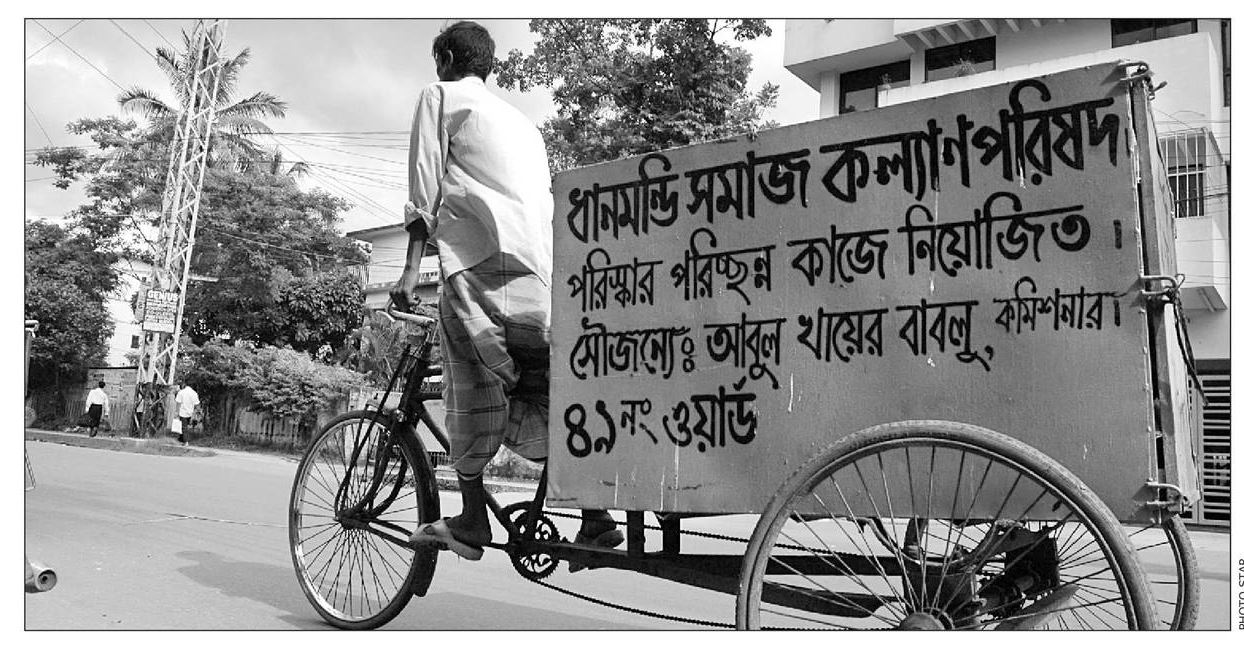 ধানমন্ডি সমাজ কল্যাণ পরিষদ
পরিস্কার পরিচ্ছন্ন কাজে নিয়োজিত ।
সৌজন্যেঃ আবুল খায়ের বাবলু, কমিশনার।
৪৯ নং ওয়ার্ড
GENIUS
PHOTO STAR